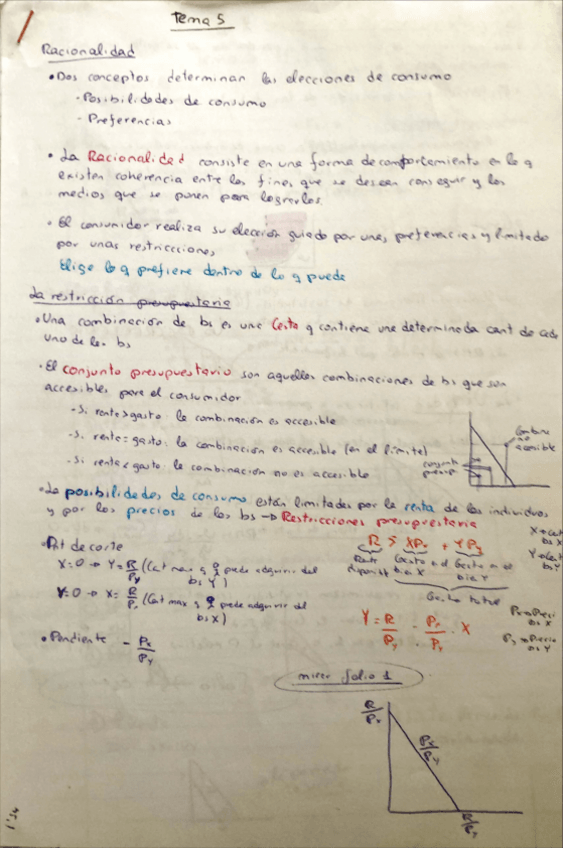 Tema 5
Racionalidad
• Dos conceptos determinan las elecciones de consumo
- Posibilidades de consumo
- Preferencias
• La Racionalidad consiste en una forma de comportamiento en la q
existen coherencia entre los fines que se desean conseguir y los
medios que se ponen para lograrlos.
• El consumidor realiza su elección guiado por unas preferencias y limitado
por unas restricciones,
Elige lo q prefiere dentro de lo q puede
La restricción presupuestaria
• Una combinación de bs es una Cesta q contiene una determinada cant de cada
uno de los bs
• El conjunto presupuestario son aquellas combinaciones de bs que son
accesibles para el consumidor
- Si renta > gasto: la combinación es accesible
- Si renta = gasto: la combinación es accesible (en el límite)
- Si renta < gasto: la combinación no es accesible
Combina
no
accesible
conjunto
presup.
• La posibilidades de consumo están limitadas por la renta de los individuos
y por los precios de los bs → Restricciones presupuestaria
• Pnt de corte
X=0 → Y = R/Py (Cat max q puede adquirir del
bs Y)
Y=0 → X = R/P (Cat max q puede adquirir del
bs X)
R ≥ XPx + YPy
Renta
disponible
Gasto en el
bien X
Gasto en el
bien Y
Gasto total
X → Cat
bs X
Y → Cat
bs Y
Y = R/Py - Px/Py · X
Px → Preci
bs X
Py → Precio
bs Y
• Pendiente - Px/Py
mirar folio 1